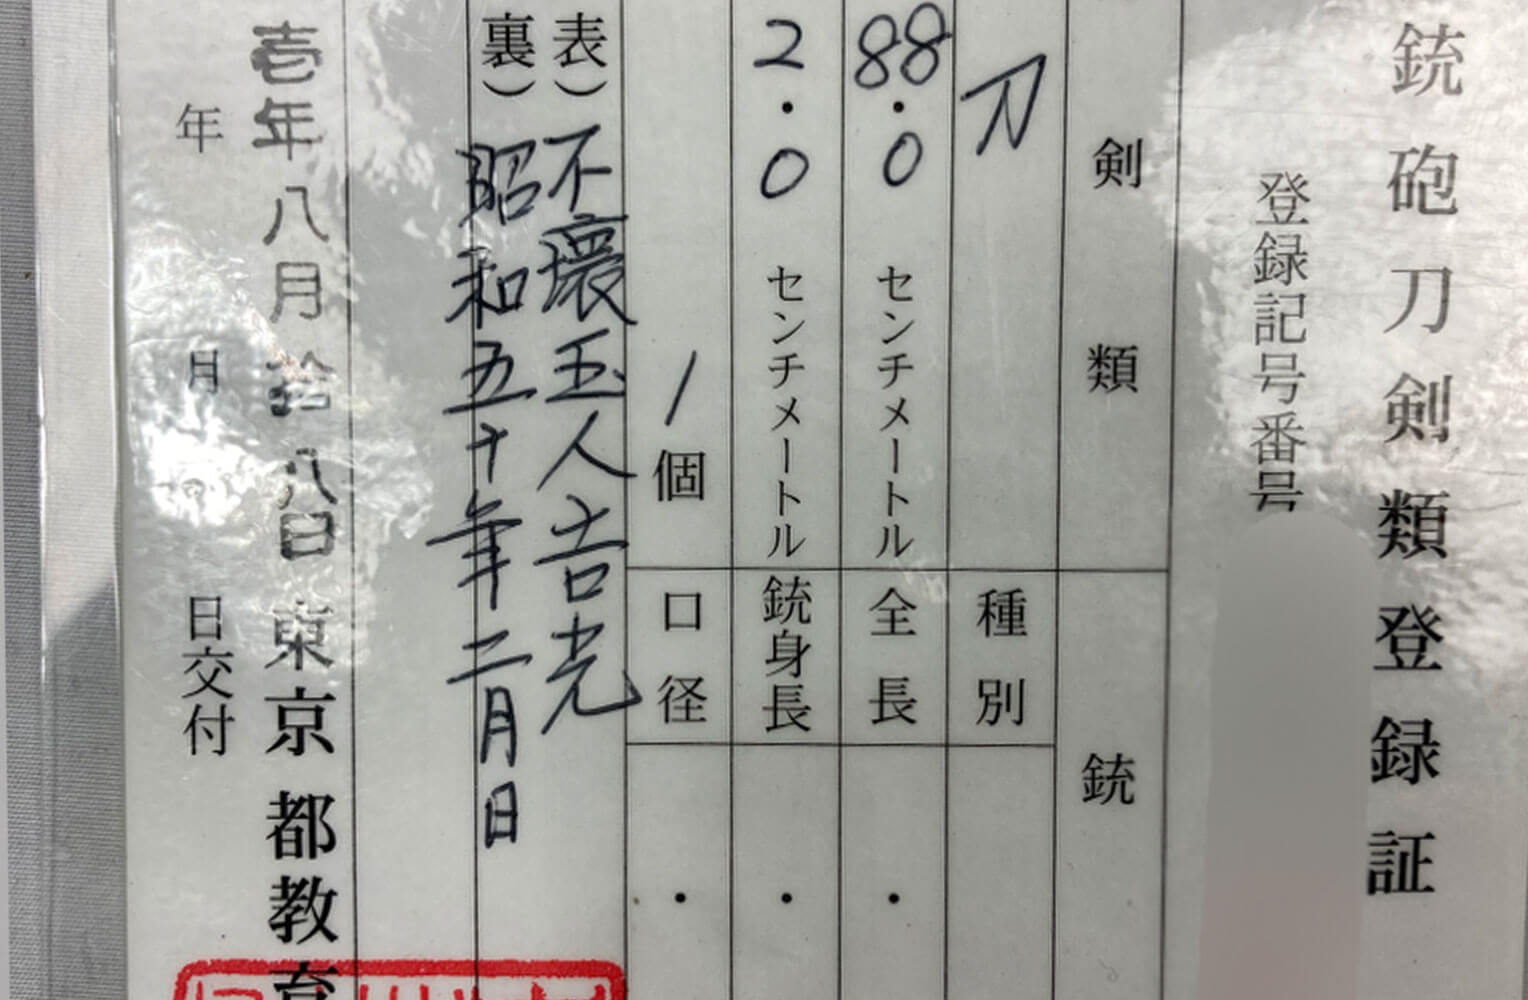 銃砲刀剣類登録証
登録記号番号
剣類
銃
刀
種別
88.0センチメートル
全長
2.0センチメートル
銃身長
1個
口径
表)不環玉人吉光
裏)昭和五十年二月日
壱年八月拾八日
東京都教育
年月日交付